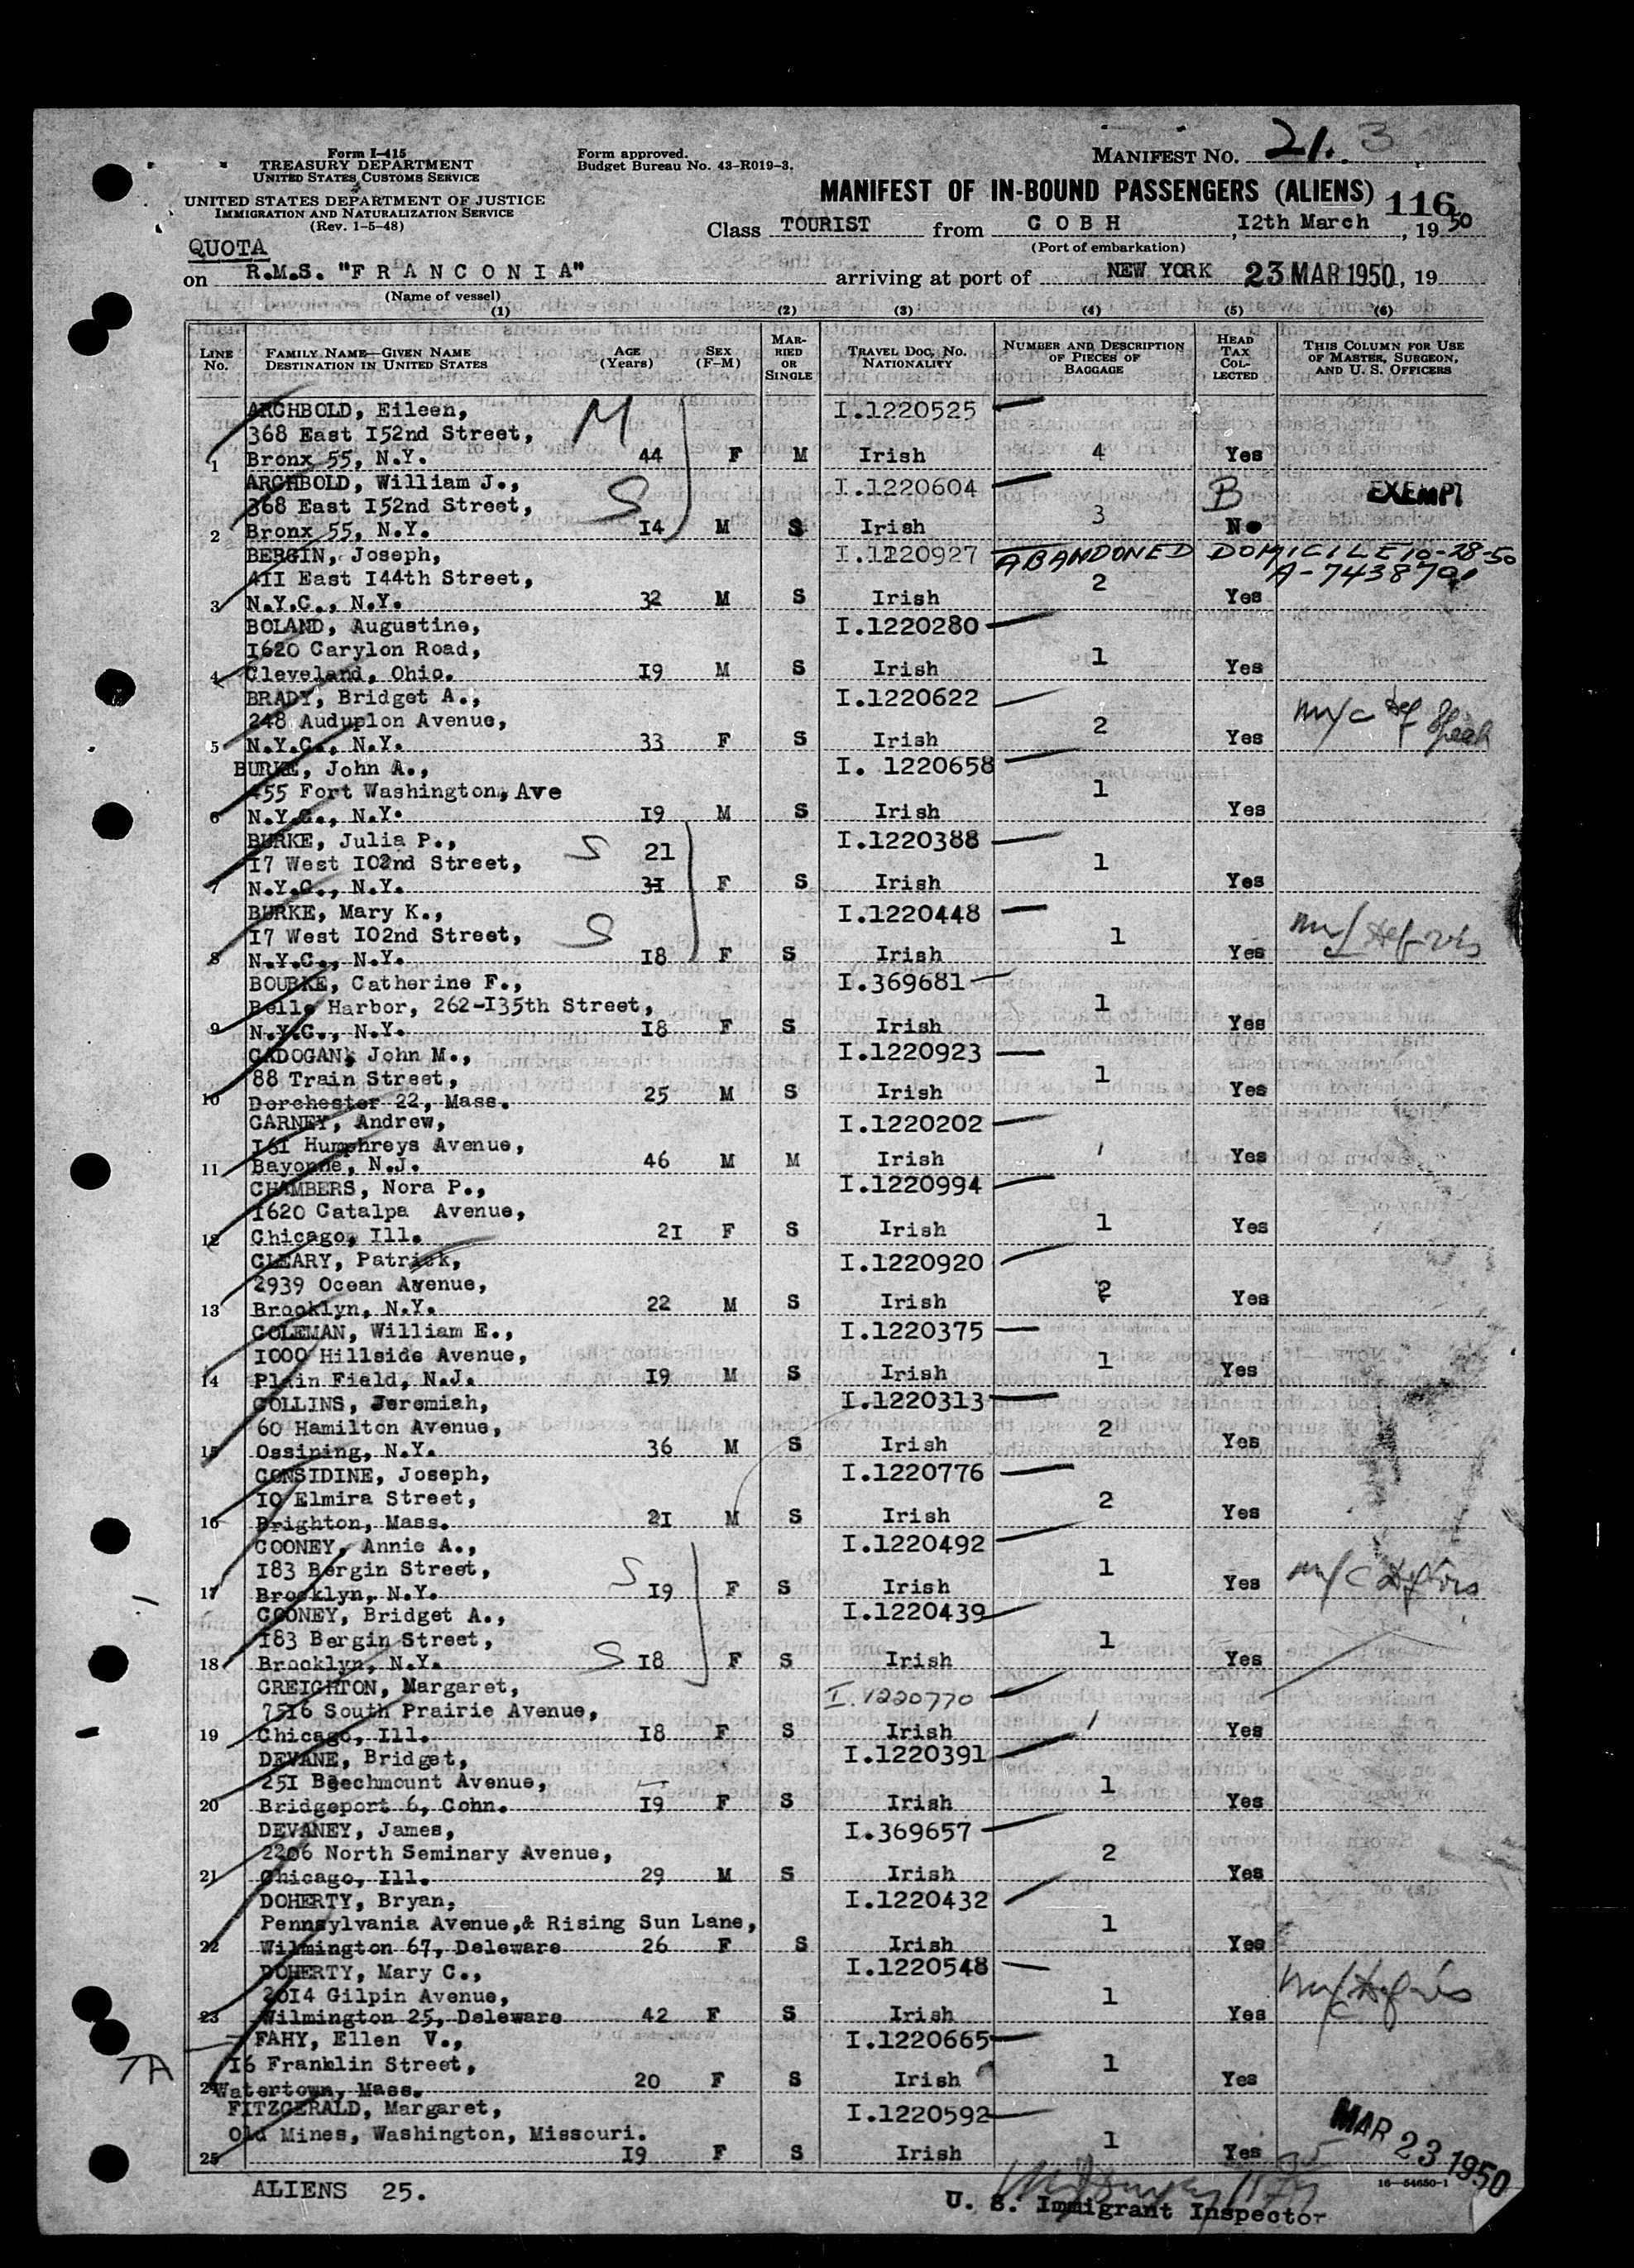 Form I-415
TREASURY DEPARTMENT
UNITED STATES CUSTOMS SERVICE
UNITED STATES DEPARTMENT OF JUSTICE
IMMIGRATION AND NATURALIZATION SERVICE
(Rev. 1-5-48)
Form approved.
Budget Bureau No. 43-R019-3.
MANIFEST NO. 21. 3
MANIFEST OF IN-BOUND PASSENGERS (ALIENS) 116
Class TOURIST from C O B H, 12th March, 19 50
(Port of embarkation)
QUOTA
on R.M.S. "F R A N C O N I A" arriving at port of NEW YORK 23 MAR 1950, 19
(Name of vessel)
(1) (2) (3) (4) (5) (6)
LINE No. FAMILY NAME—GIVEN NAME DESTINATION IN UNITED STATES AGE (Years) SEX (F-M) MARRIED OR SINGLE TRAVEL DOC. NO. NATIONALITY NUMBER AND DESCRIPTION OF PIECES OF BAGGAGE HEAD TAX COLLECTED THIS COLUMN FOR USE OF MASTER, SURGEON, AND U. S. OFFICERS
ARCHBOLD, Eileen, M I.1220525
368 East I52nd Street,
1 Bronx 55, N.Y. 44 F M Irish 4 Yes
ARCHBOLD, William J., S I.1220604 B EXEMPT
368 East I52nd Street,
2 Bronx 55, N.Y. I4 M S Irish 3 No
BERGIN, Joseph, I.1220927 ABANDONED DOMICILE 10-28-50
4II East I44th Street, A-7438790
3 N.Y.C., N.Y. 32 M S Irish 2 Yes
BOLAND, Augustine, I.1220280
I620 Carylon Road,
4 Cleveland, Ohio. I9 M S Irish 1 Yes
BRADY, Bridget A., I.1220622
248 Auduplon Avenue,
5 N.Y.C., N.Y. 33 F S Irish 2 Yes
BURKE, John A., I. 1220658
455 Fort Washington, Ave
6 N.Y.C., N.Y. I9 M S Irish 1 Yes
BURKE, Julia P., S 21 I.1220388
I7 West I02nd Street,
7 N.Y.C., N.Y. 3I F S Irish 1 Yes
BURKE, Mary K., I.1220448
I7 West I02nd Street, S
8 N.Y.C., N.Y. I8 F S Irish 1 Yes
BOURKE, Catherine F., I.369681
Belle Harbor, 262-I35th Street,
9 N.Y.C., N.Y. I8 F S Irish 1 Yes
CADOGAN, John M., I.1220923
88 Train Street,
10 Dorchester 22, Mass. 25 M S Irish 1 Yes
CARNEY, Andrew, I.1220202
I6I Humphreys Avenue,
11 Bayonne, N.J. 46 M M Irish 1 Yes
CHAMBERS, Nora P., I.1220994
I620 Catalpa Avenue,
12 Chicago, Ill. 2I F S Irish 1 Yes
CLEARY, Patrick, I.1220920
2939 Ocean Avenue,
13 Brooklyn, N.Y. 22 M S Irish 2 Yes
COLEMAN, William E., I.1220375
I000 Hillside Avenue,
14 Plain Field, N.J. I9 M S Irish 1 Yes
COLLINS, Jeremiah, I.1220313
60 Hamilton Avenue,
15 Ossining, N.Y. 36 M S Irish 2 Yes
CONSIDINE, Joseph, I.1220776
I0 Elmira Street,
16 Brighton, Mass. 2I M S Irish 2 Yes
COONEY, Annie A., I.1220492
I83 Bergin Street, S
17 Brooklyn, N.Y. I9 F S Irish 1 Yes
COONEY, Bridget A., I.1220439
I83 Bergin Street,
18 Brooklyn, N.Y. S I8 F S Irish 1 Yes
CREIGHTON, Margaret, I.1220770
75I6 South Prairie Avenue,
19 Chicago, Ill. I8 F S Irish 1 Yes
DEVANE, Bridget, I.1220391
25I Beechmount Avenue,
20 Bridgeport 6, Cohn. I9 F S Irish 1 Yes
DEVANEY, James, I.369657
2206 North Seminary Avenue,
21 Chicago, Ill. 29 M S Irish 2 Yes
DOHERTY, Bryan, I.1220432
Pennsylvania Avenue,& Rising Sun Lane,
22 Wilmington 67, Deleware 26 F S Irish 1 Yes
DOHERTY, Mary C., I.1220548
20I4 Gilpin Avenue,
23 Wilmington 25, Deleware 42 F S Irish 1 Yes
FAHY, Ellen V., I.1220665
TA I6 Franklin Street,
24 Watertown, Mass. 20 F S Irish 1 Yes
FITZGERALD, Margaret, I.1220592
Old Mines, Washington, Missouri.
25 I9 F S Irish 1 Yes
MAR 23 1950
ALIENS 25.
16—54650-1
U. S. Immigrant Inspector